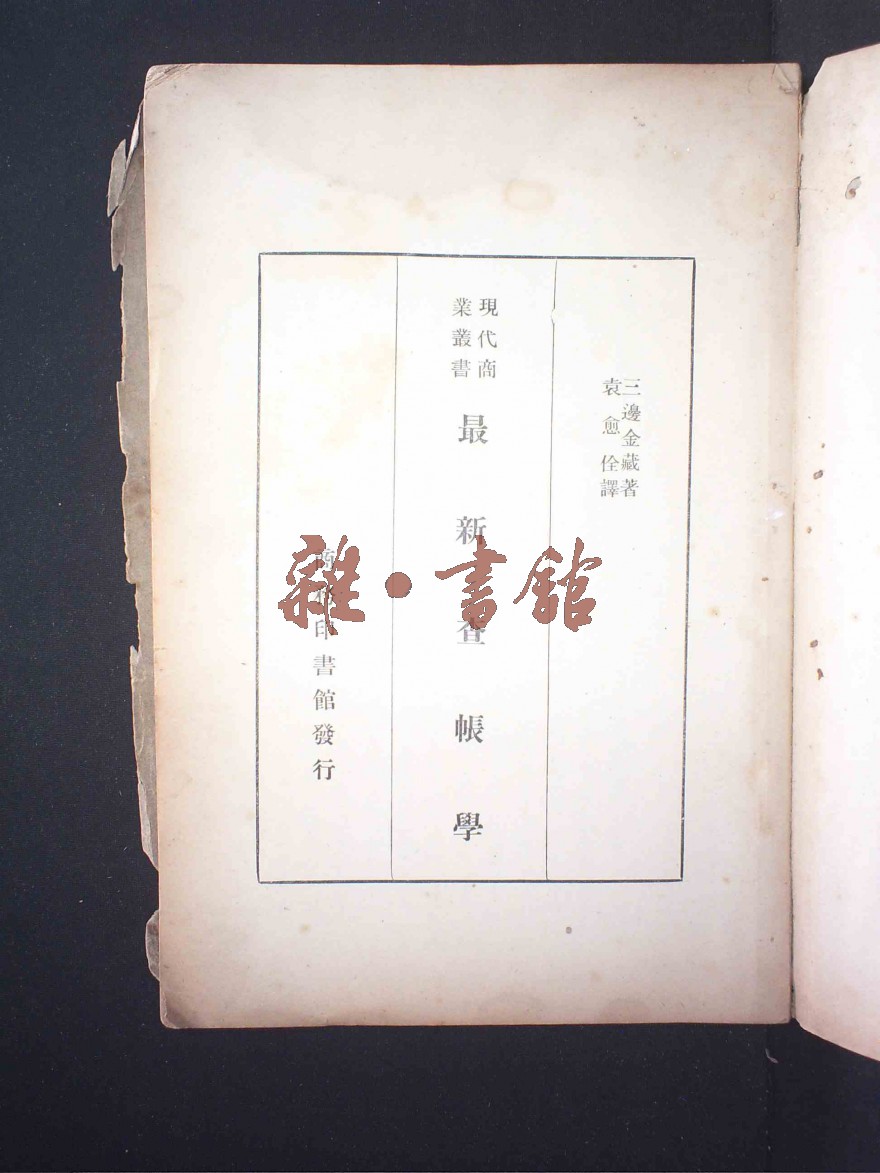 三邊金藏著
袁愈佺譯
現代商
業叢書
最新查帳學
商務印書館發行
雜·書館